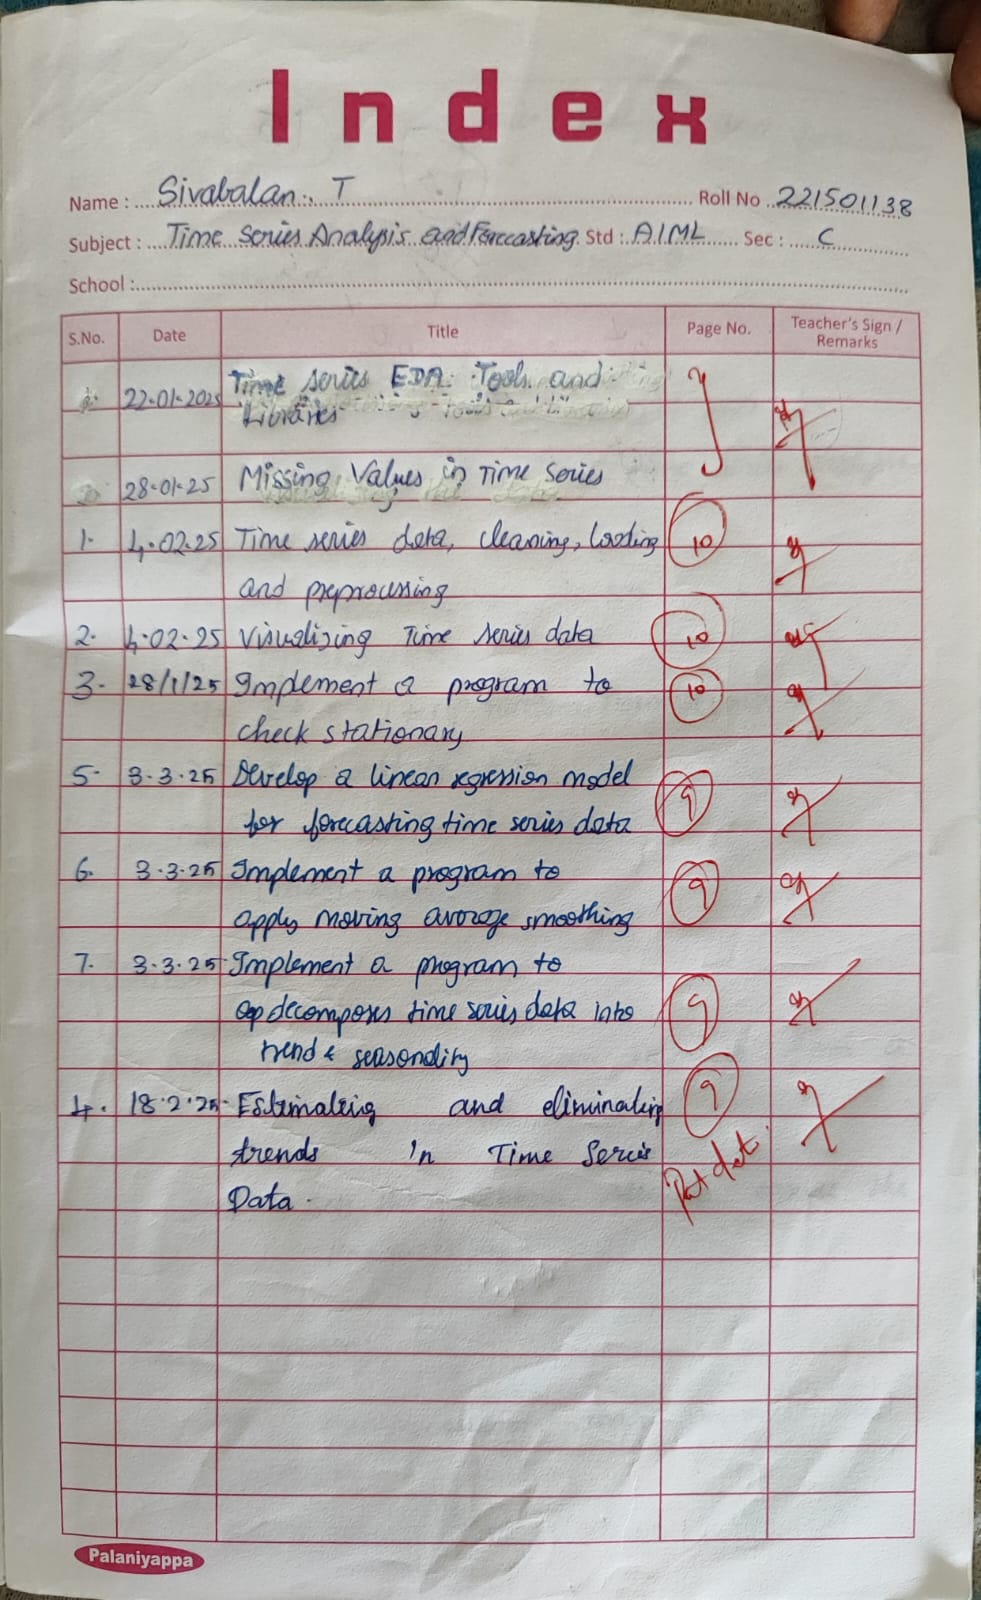 Index
Name : Sivabalan. T Roll No 221501138
Subject : Time Series Analysis and Forecasting Std : AIML Sec : C
School :
S.No. Date Title Page No. Teacher's Sign / Remarks
22.01.2025 Time series EDA: Tools and
Libraries
28.01.25 Missing Values in Time Series
1. 4.02.25 Time series data, cleaning, loading 10
and preprocessing
2. 4.02.25 Visualizing Time series data 10
3. 28/1/25 Implement a program to 10
check stationary
5. 3.3.25 Develop a linear regression model 9
for forecasting time series data
6. 3.3.25 Implement a program to 9
apply moving average smoothing
7. 3.3.25 Implement a program to
decomposes time series data into 9
trend & seasonality
4. 18.2.25 Estimating and eliminating 9
trends in Time Series
Data.
Palaniyappa